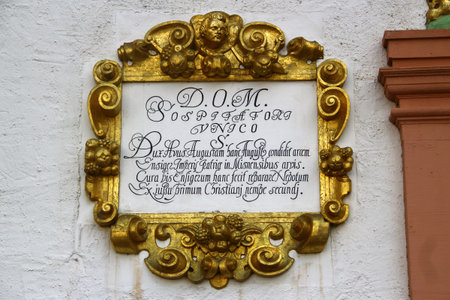 D. O. M.
SOSPITATORI
VNICO
S.
Dux Avus Augustam hanc Augusto condidit arcem
Ensiger Imperij Patriæ in Misnensibus arvis.
Cura bis Ensigerum hanc fecit reparare Nepotum
Ex jussu primum Christianj nempe secundj.